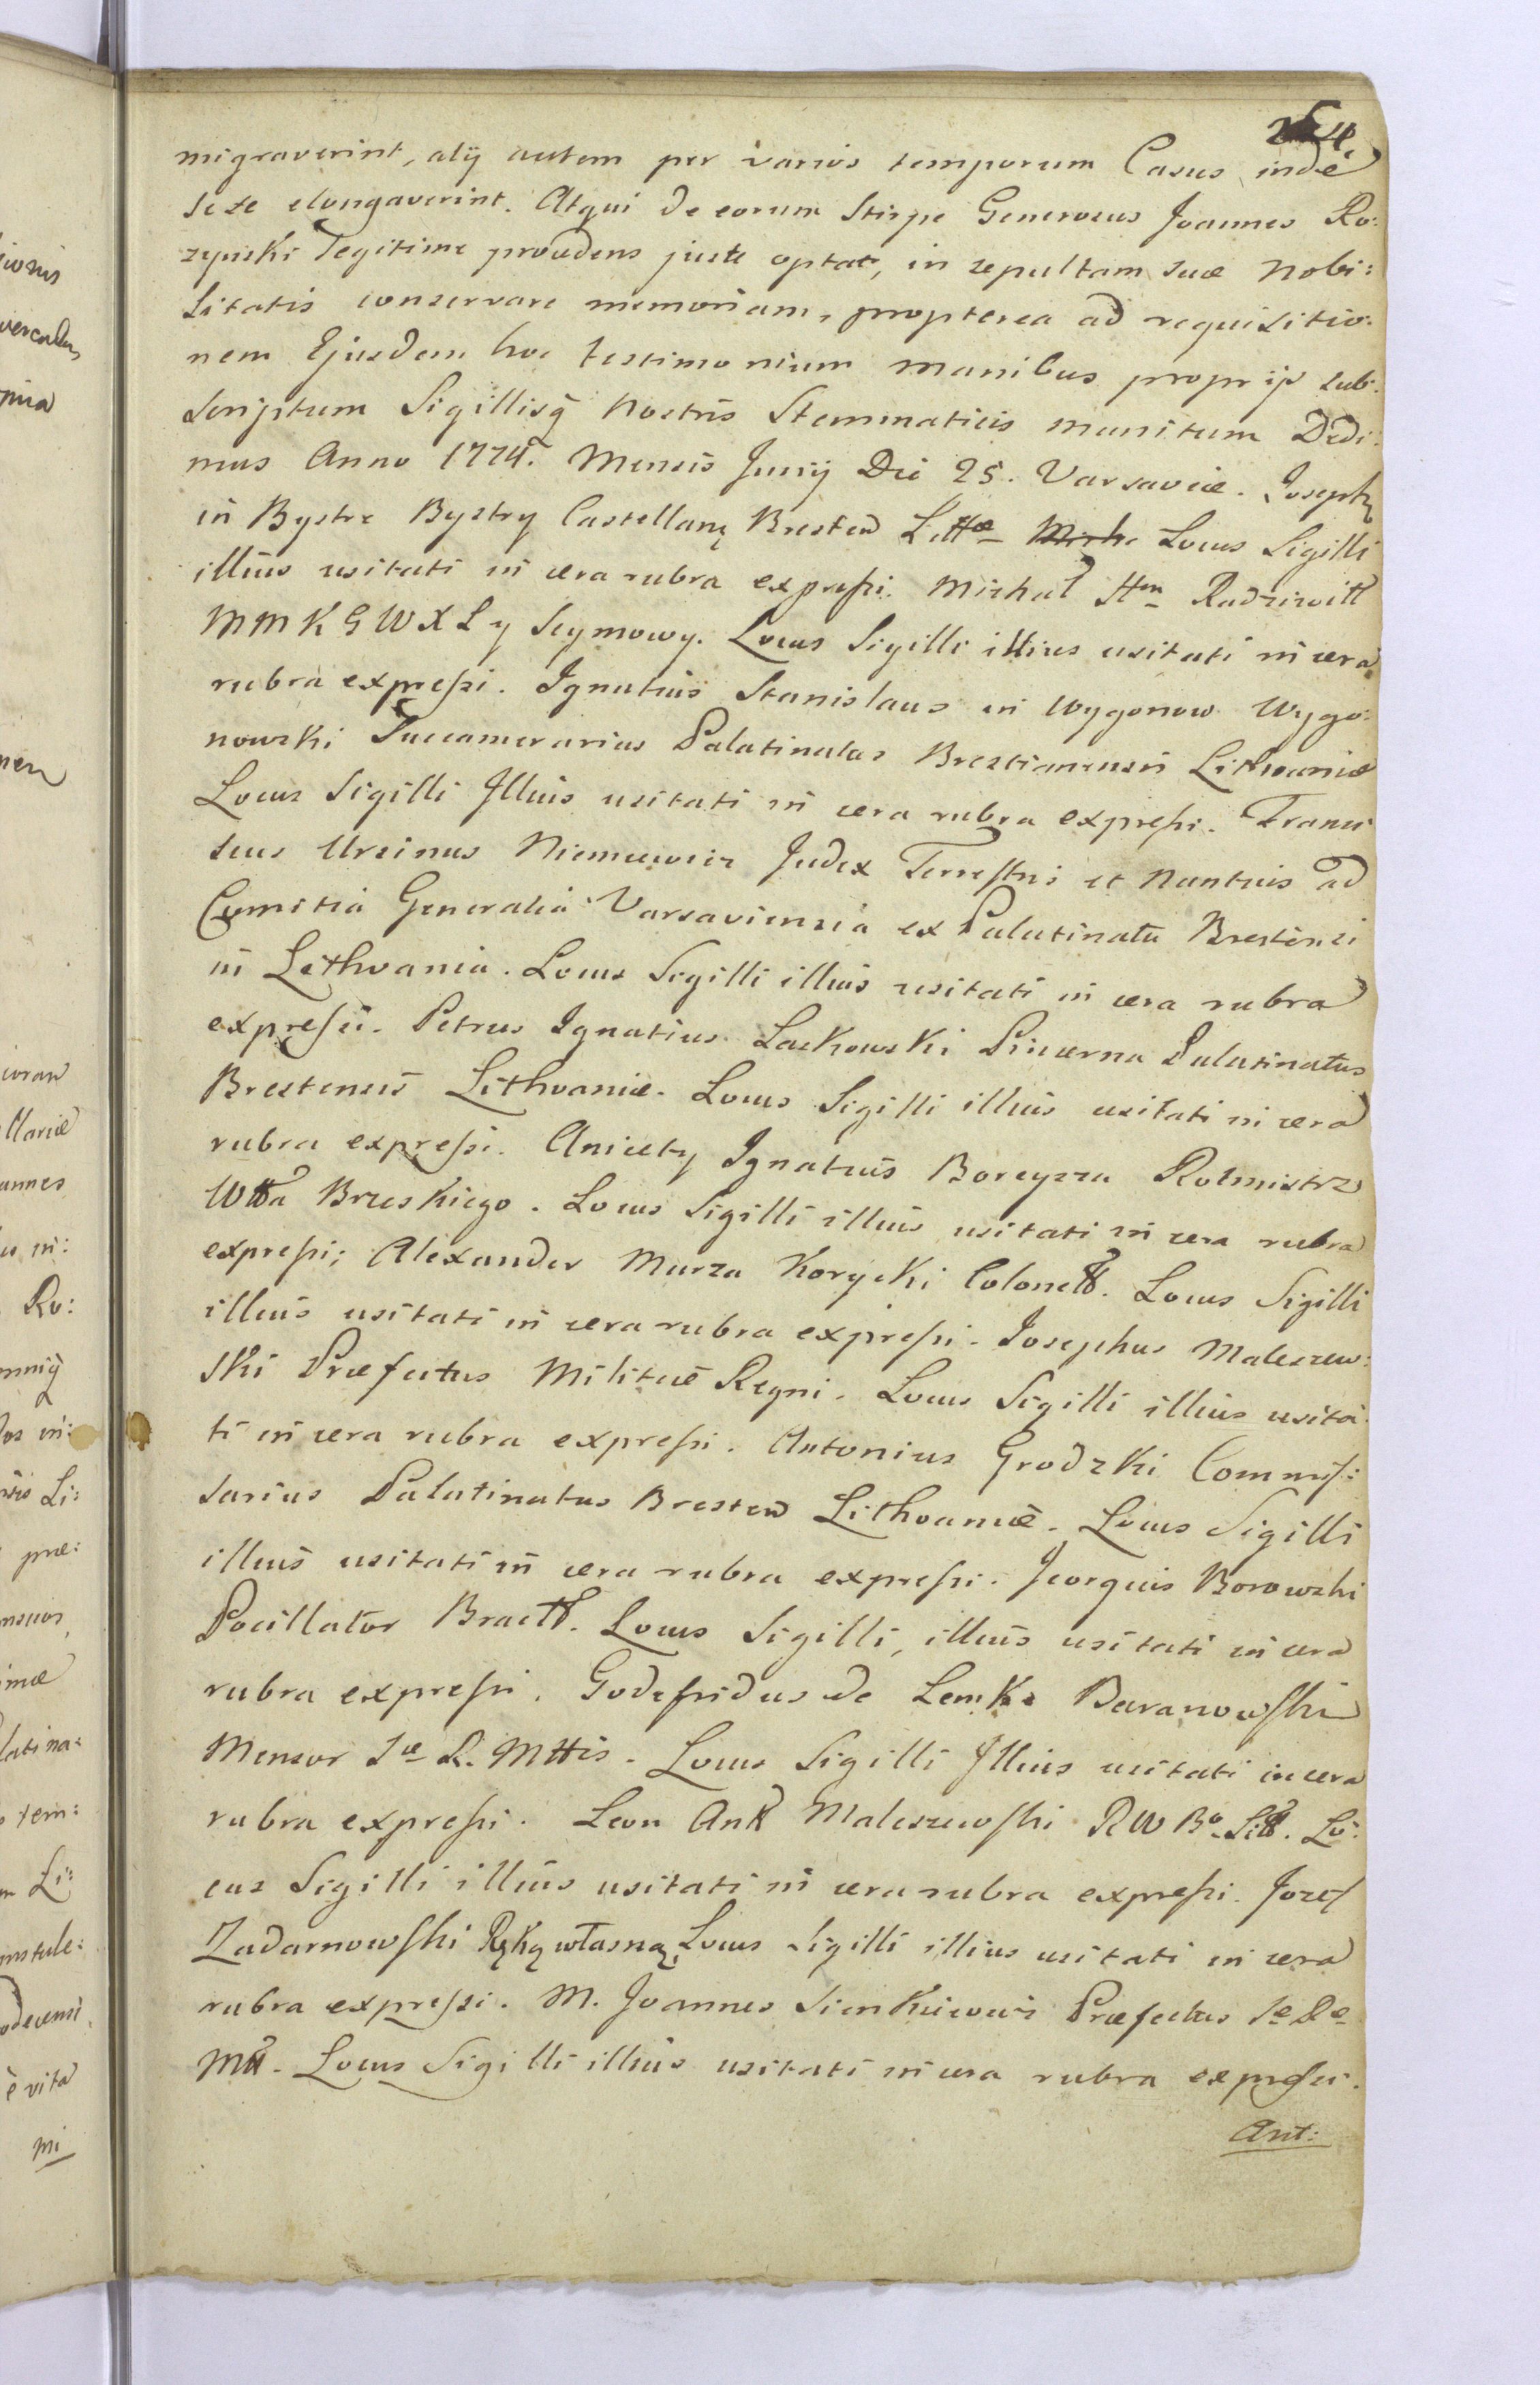 254.
migraverint, alij autem per varios temporum Casus inde
sese elongaverint. Atqui de eorum Stirpe Generosus Joannes Ro:
zynski legitime provdens juste optat, in sepultam suæ Nobi:
litatis conservare memoriam, propterea ad requisitio:
nem Ejusdem hoc testimonium manibus proprijs sub:
scriptum Sigillisq̃ Nostris Stemmaticis munitum Dedi:
mus Anno 1774. Mensis Junij Die 25. Varsaviæ. Joseph9
in Bystre Bystry Castellan9 Bresten Littæ Locus Sigilli
illius usitati in cera rubra expreſsi. Michał Hen Radziwiłł
M M K G W X L y Seymowy. Locus Sigilli illius usitati in cera
rubra expreſsi. Ignatius Stanislaus in Wygonow Wygo:
nowski Succamerarius Palatinatus Brestianensis Lithvaniæ
Locus Sigilli Illius usitati in cera rubra expreſsi. Francis
scus Ursinus Niemcewicz Judex Terrestris et Nuntius ad
Comitia Generalia Varsaviensia ex Palatinatu Brestensi
in Lithvania. Locus Sigilli illius usitati in cera rubra
expreſsi. Petrus Ignatius Laskowski Pincerna Palatinatus
Brestensis Lithvaniæ. Locus Sigilli illius usitati in cera
rubra expreſsi. Anicety Ignatius Boreysza Rotmistrz
Wttа Brzeskiego. Locus Sigilli illius usitati in cera rubra
expreſsi; Alexander Murza Korycki Colonell. Locus Sigilli
illius usitati in cera rubra expreſsi. Josephus Maleszew:
ski Præfectus Militiæ Regni. Locus Sigilli illius usita:
ti in cera rubra expreſsi. Antonius Grodzki Commiſ:
sarius Palatinatus Bresten Lithvaniæ. Locus Sigilli
illius usitati in cera rubra expreſsi. Jeorgius Borowski
Pocillator Bracll. Locus Sigilli, illius usitati in cera
rubra expreſsi. Godefridus de Lemke Baranowſki
Mensor Sæ R. Mttis. Locus Sigilli Illius usitati in cera
rubra expreſsi. Leon Ant Maleszewſki R W Bo Litt. Lo:
cus Sigilli illius usitati in cera rubra expreſsi. Jozef
Zadarnowſki Ręką własną, Locus Sigilli illius usitati in cera
rubra expreſsi. M. Joannes Sienkiewicz Præfectus Se Re
Mtt. Locus Sigilli illius usitati in cera rubra expreſsi.
Ant: